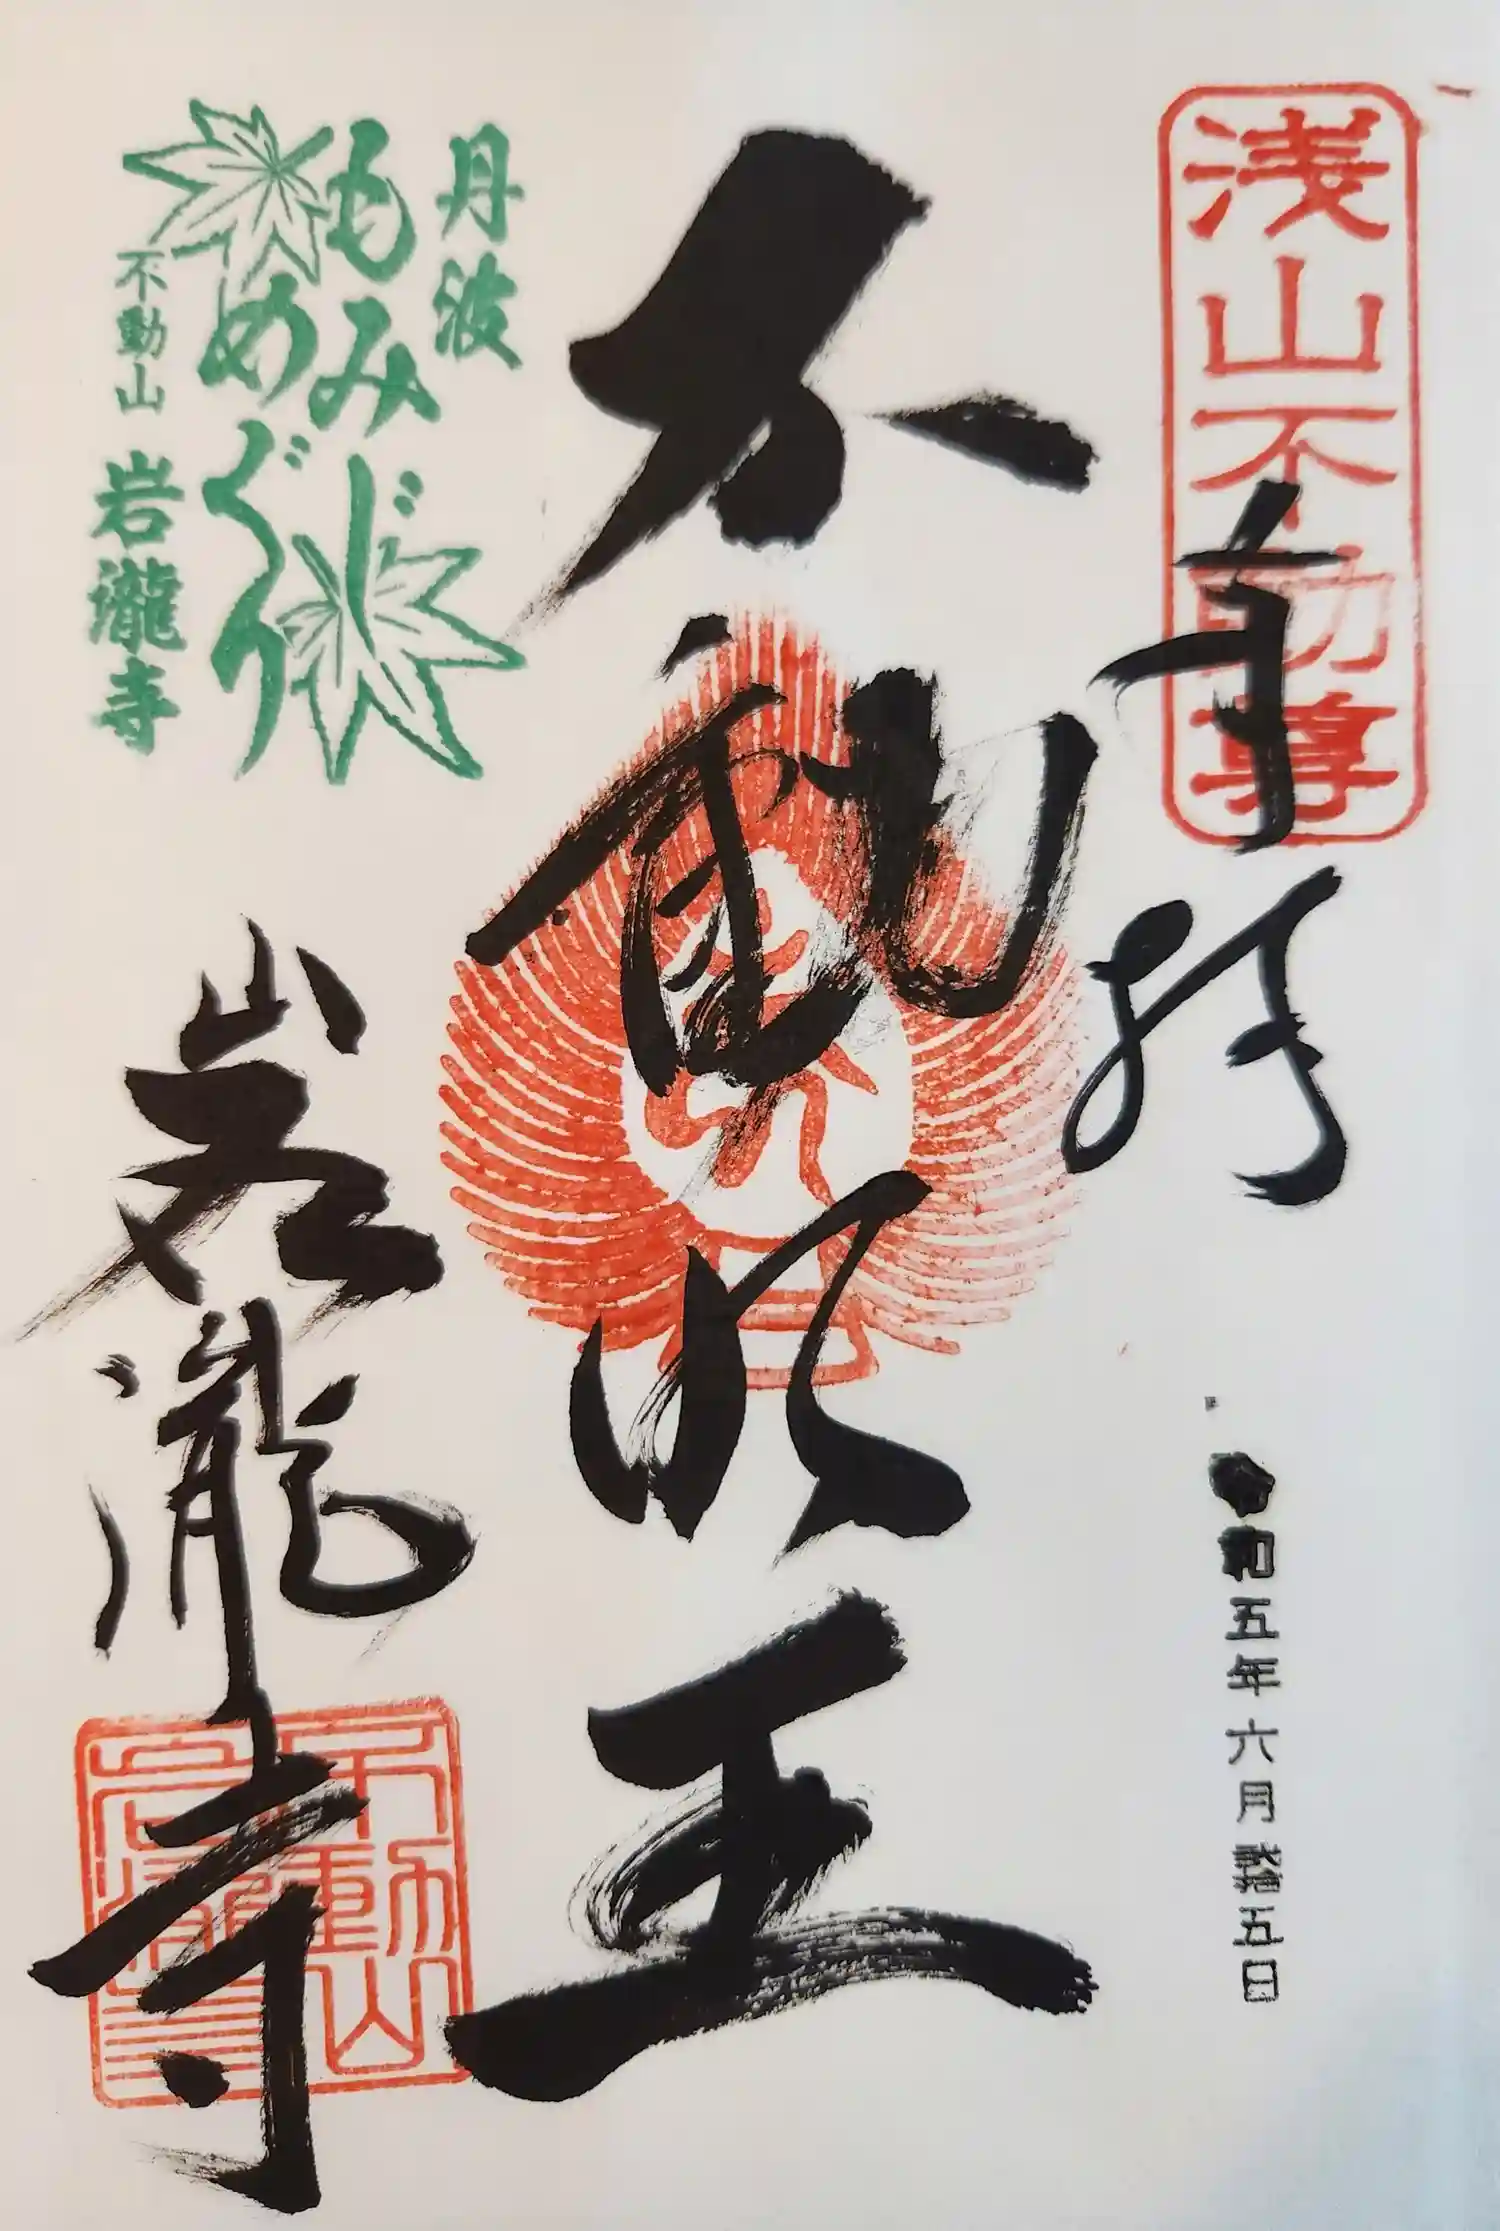 浅山不動尊
奉拝
令和五年六月 五日
不動明王
丹波
もみじ
めぐり
不動山 岩瀧寺
岩瀧寺
不動山